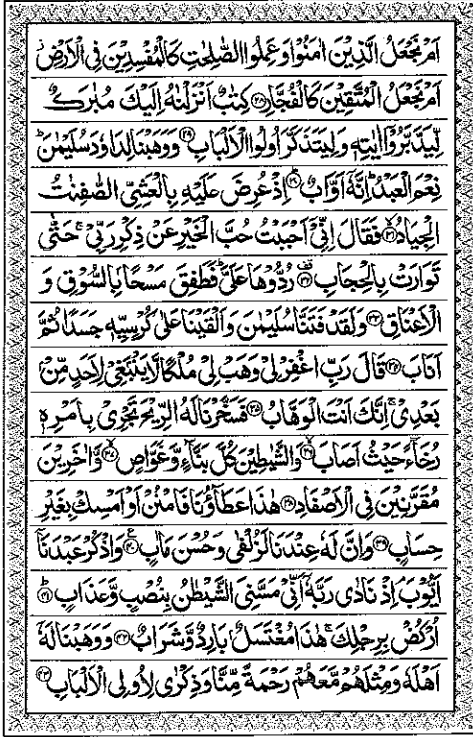 اَمْ نَجْعَلُ الَّذِيْنَ اٰمَنُوْا وَعَمِلُوا الصّٰلِحٰتِ كَالْمُفْسِدِيْنَ فِى الْاَرْضِ
اَمْ نَجْعَلُ الْمُتَّقِيْنَ كَالْفُجَّارِ ۝۲۸ كِتٰبٌ اَنْزَلْنٰهُ اِلَيْكَ مُبٰرَكٌ
لِّيَدَّبَّرُوْۤا اٰيٰتِهٖ وَلِيَتَذَكَّرَ اُولُوا الْاَلْبَابِ ۝۲۹ وَوَهَبْنَا لِدَاوٗدَ سُلَيْمٰنَ ؕ
نِعْمَ الْعَبْدُ ؕ اِنَّهٗۤ اَوَّابٌ ۝۳۰ اِذْ عُرِضَ عَلَيْهِ بِالْعَشِىِّ الصّٰفِنٰتُ
الْجِيَادُ ۝۳۱ فَقَالَ اِنِّىْۤ اَحْبَبْتُ حُبَّ الْخَيْرِ عَنْ ذِكْرِ رَبِّىْ ۚ حَتّٰى
تَوَارَتْ بِالْحِجَابِ ۝۳۲ رُدُّوْهَا عَلَىَّ ؕ فَطَفِقَ مَسْحًۢا بِالسُّوْقِ وَ
الْاَعْنَاقِ ۝۳۳ وَلَقَدْ فَتَنَّا سُلَيْمٰنَ وَاَلْقَيْنَا عَلٰى كُرْسِيِّهٖ جَسَدًا ثُمَّ
اَنَابَ ۝۳۴ قَالَ رَبِّ اغْفِرْ لِىْ وَهَبْ لِىْ مُلْكًا لَّا يَنْۢبَغِىْ لِاَحَدٍ مِّنْۢ
بَعْدِىْ ۚ اِنَّكَ اَنْتَ الْوَهَّابُ ۝۳۵ فَسَخَّرْنَا لَهُ الرِّيْحَ تَجْرِىْ بِاَمْرِهٖ
رُخَآءً حَيْثُ اَصَابَ ۝۳۶ وَالشَّيٰطِيْنَ كُلَّ بَنَّآءٍ وَّغَوَّاصٍ ۝۳۷ وَّاٰخَرِيْنَ
مُقَرَّنِيْنَ فِى الْاَصْفَادِ ۝۳۸ هٰذَا عَطَآؤُنَا فَامْنُنْ اَوْ اَمْسِكْ بِغَيْرِ
حِسَابٍ ۝۳۹ وَاِنَّ لَهٗ عِنْدَنَا لَزُلْفٰى وَحُسْنَ مَاٰبٍ ۝۴۰ وَاذْكُرْ عَبْدَنَاۤ
اَيُّوْبَ اِذْ نَادٰى رَبَّهٗۤ اَنِّىْ مَسَّنِىَ الشَّيْطٰنُ بِنُصْبٍ وَّعَذَابٍ ۝۴۱
اُرْكُضْ بِرِجْلِكَ ۚ هٰذَا مُغْتَسَلٌۢ بَارِدٌ وَّشَرَابٌ ۝۴۲ وَوَهَبْنَا لَهٗۤ
اَهْلَهٗ وَمِثْلَهُمْ مَّعَهُمْ رَحْمَةً مِّنَّا وَذِكْرٰى لِاُولِى الْاَلْبَابِ ۝۴۳